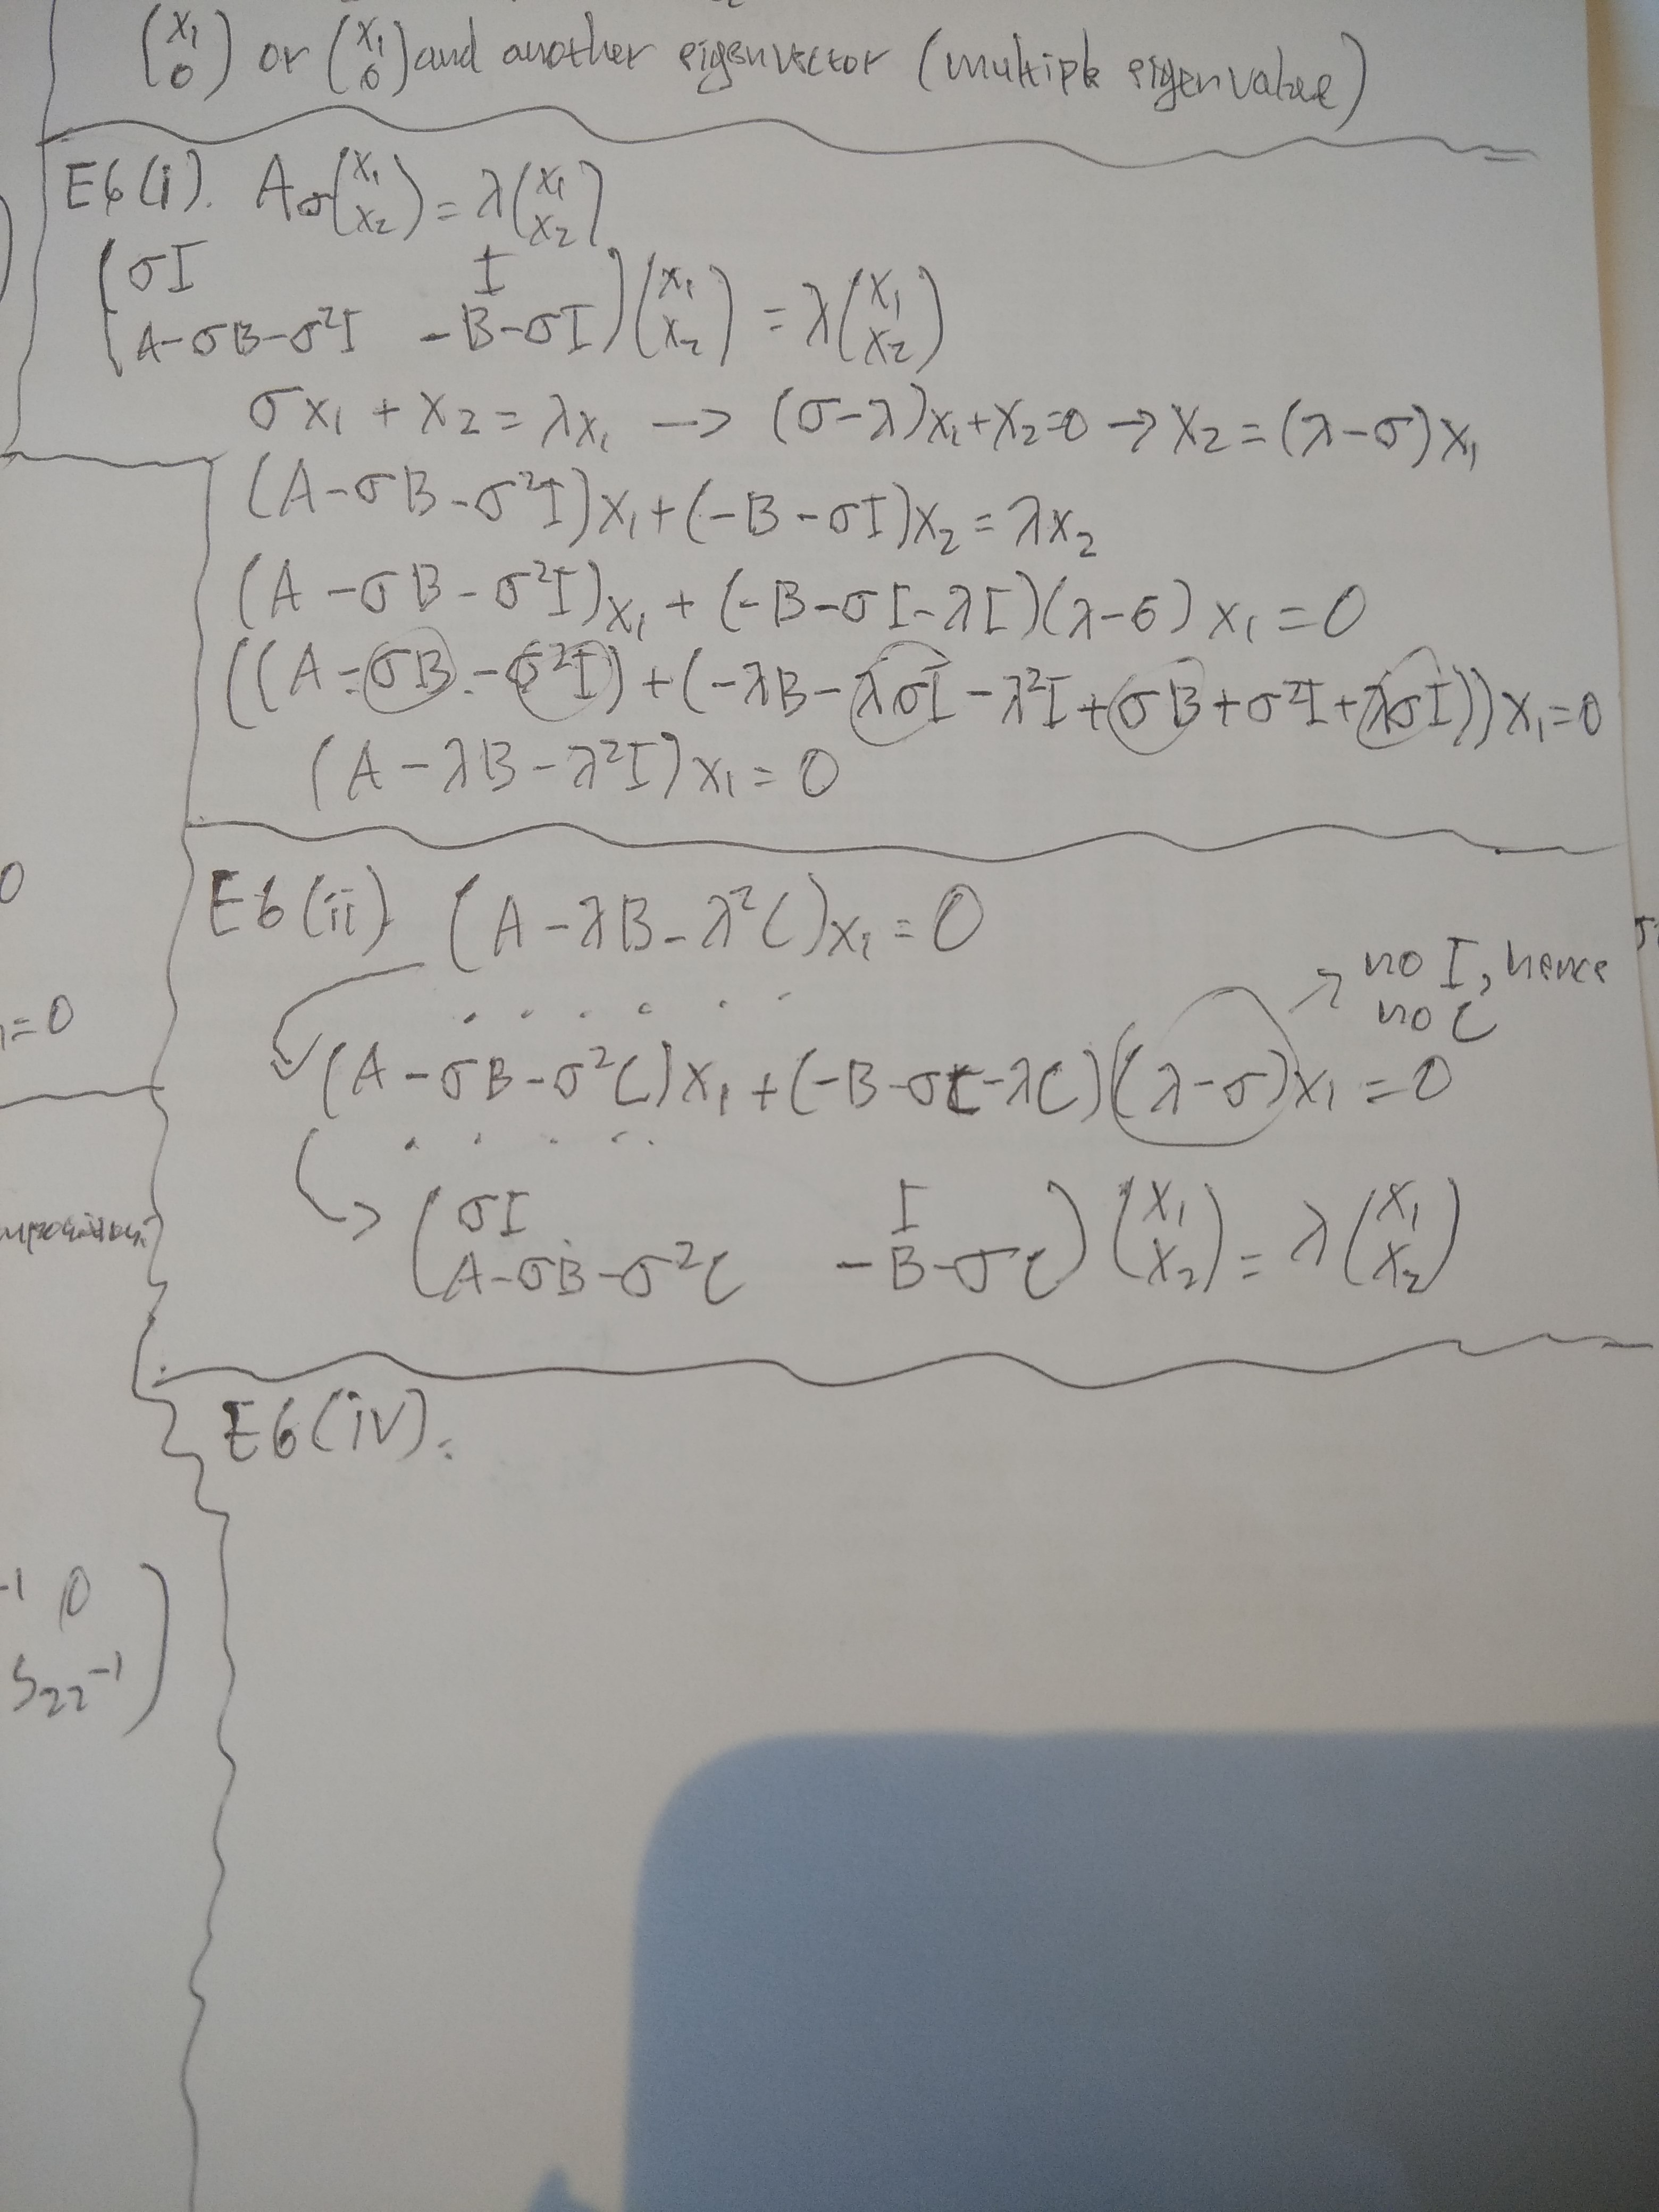 (x₁ 0) or (x₁ 0) and another eigenvector (multiple eigenvalue)
E6(i). Aσ(x₁ x₂) = λ(x₁ x₂)
(σI I
A-σB-σ²I -B-σI)(x₁ x₂) = λ(x₁ x₂)
σx₁ + x₂ = λx₁ → (σ-λ)x₁+x₂=0 → x₂ = (λ-σ)x₁
(A-σB-σ²I)x₁+(-B-σI)x₂ = λx₂
(A-σB-σ²I)x₁ + (-B-σI-λI)(λ-σ)x₁ = 0
((A-σB-σ²I)+(-λB-λσI-λ²I+σB+σ²I+λσI))x₁=0
(A-λB-λ²I)x₁ = 0
E6(ii) (A-λB-λ²C)x₁ = 0
→ no I, hence
no C
(A-σB-σ²C)x₁+(-B-σC-λC)(λ-σ)x₁ = 0
(σI I
A-σB-σ²C -B-σC)(x₁ x₂) = λ(x₁ x₂)
E6(iv).
0
=0
-1 0
S₂₂⁻¹)